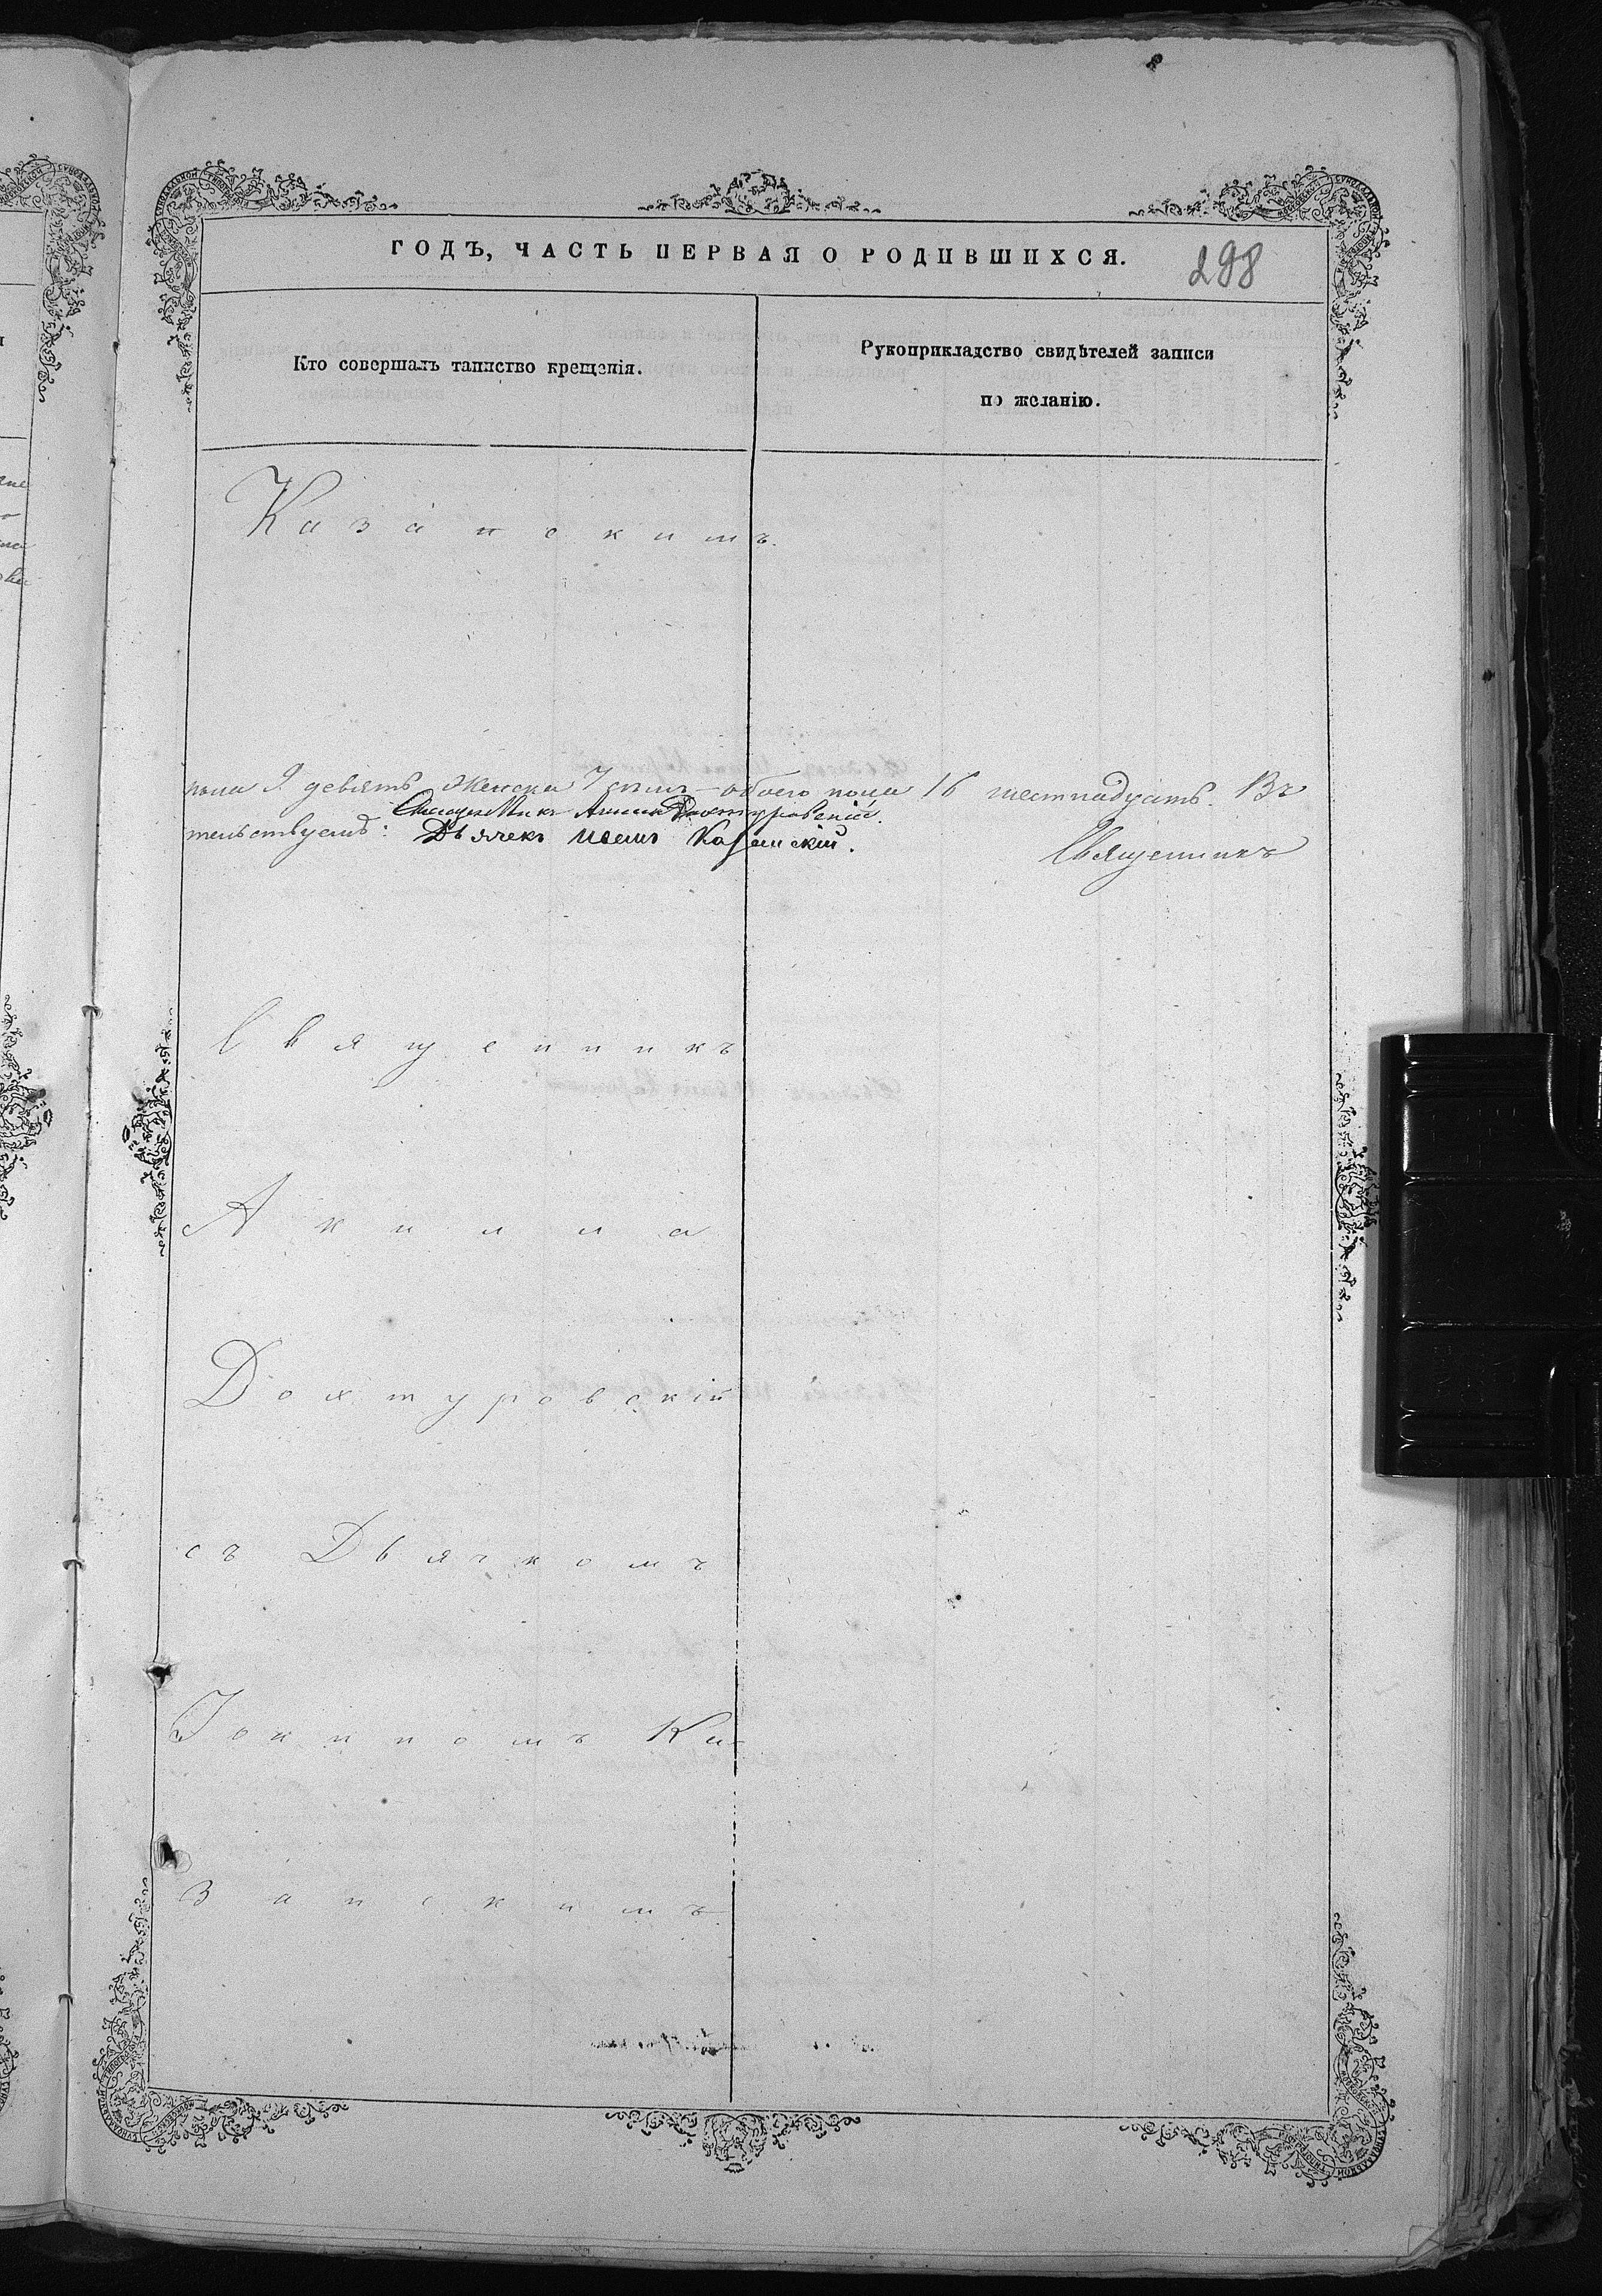 ГОДЪ, ЧАСТЬ ПЕРВАЯ О РОДИВШИХСЯ.
298
Кто совершалъ таинство крещенія.
Рукоприкладство свидѣтелей записи
по желанію.
Казанскимъ.
пола 9 девять женска 7 семь – обоего пола 16 шестнадцать. Въ
Священникъ Акила Дохтуровскій
тельствуемъ: Дьячекъ Іоаннъ Казанскій.
Священникъ
Священникъ
Акилла
Дохтуровскій
съ Дьячкомъ
Іоанномъ Ка-
занскимъ